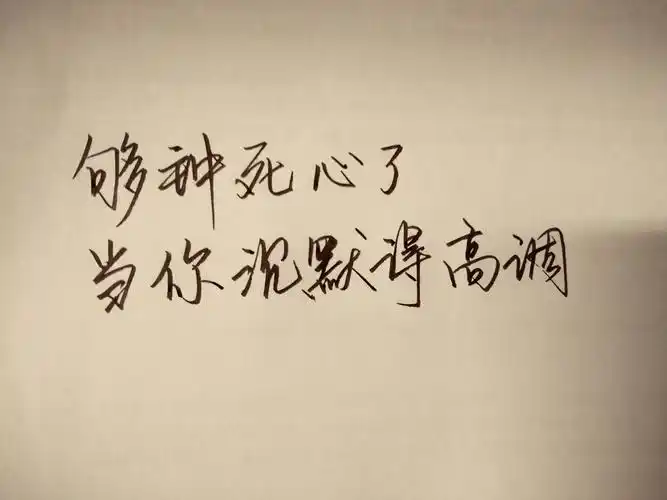 够种死心了
当你沉默得高调